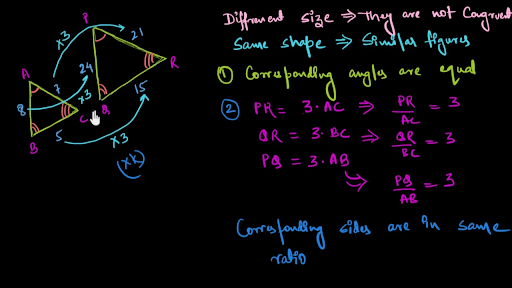 P
×3
21
24
R
A
7
×3
15
8
C
Q
B
5
×3
(×k)
Different size ⇒ They are not Congruent
Same shape ⇒ Similar figures
① Corresponding angles are equal
② PR = 3·AC ⇒ PR/AC = 3
QR = 3·BC ⇒ QR/BC = 3
PQ = 3·AB
⇒ PQ/AB = 3
Corresponding sides are in same
ratio